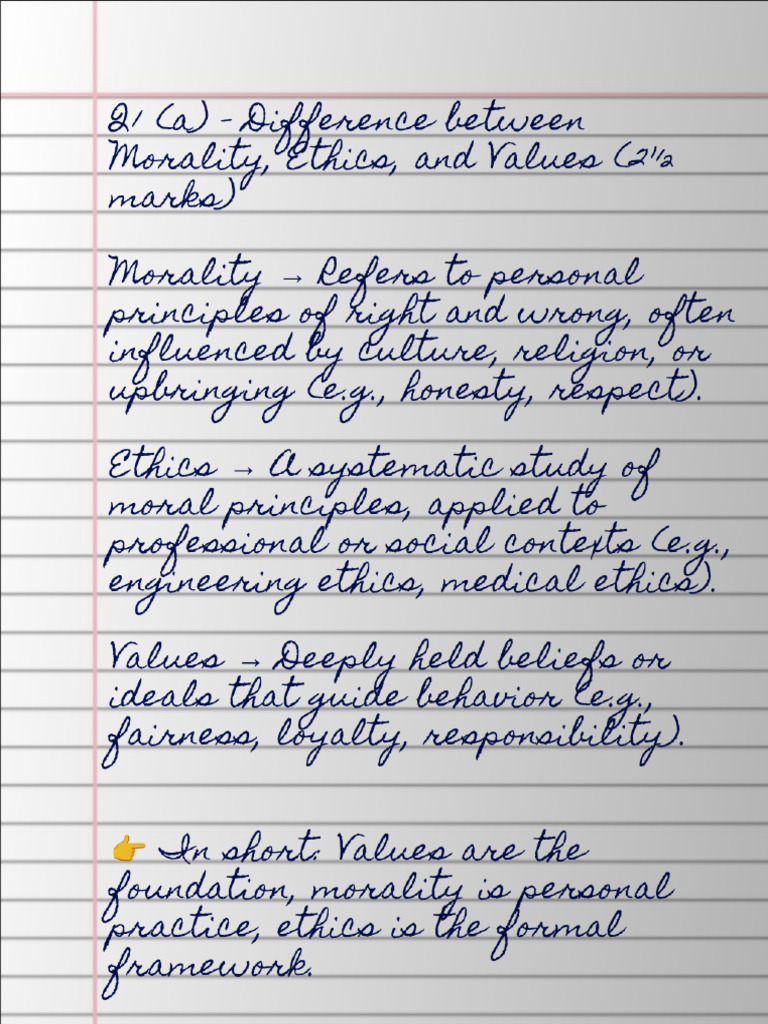 Q1 (a) - Difference between
Morality, Ethics, and Values (2½
marks)
Morality → Refers to personal
principles of right and wrong, often
influenced by culture, religion, or
upbringing (e.g., honesty, respect).
Ethics → A systematic study of
moral principles, applied to
professional or social contexts (e.g.,
engineering ethics, medical ethics).
Values → Deeply held beliefs or
ideals that guide behavior (e.g.,
fairness, loyalty, responsibility).
👉 In short: Values are the
foundation, morality is personal
practice, ethics is the formal
framework.